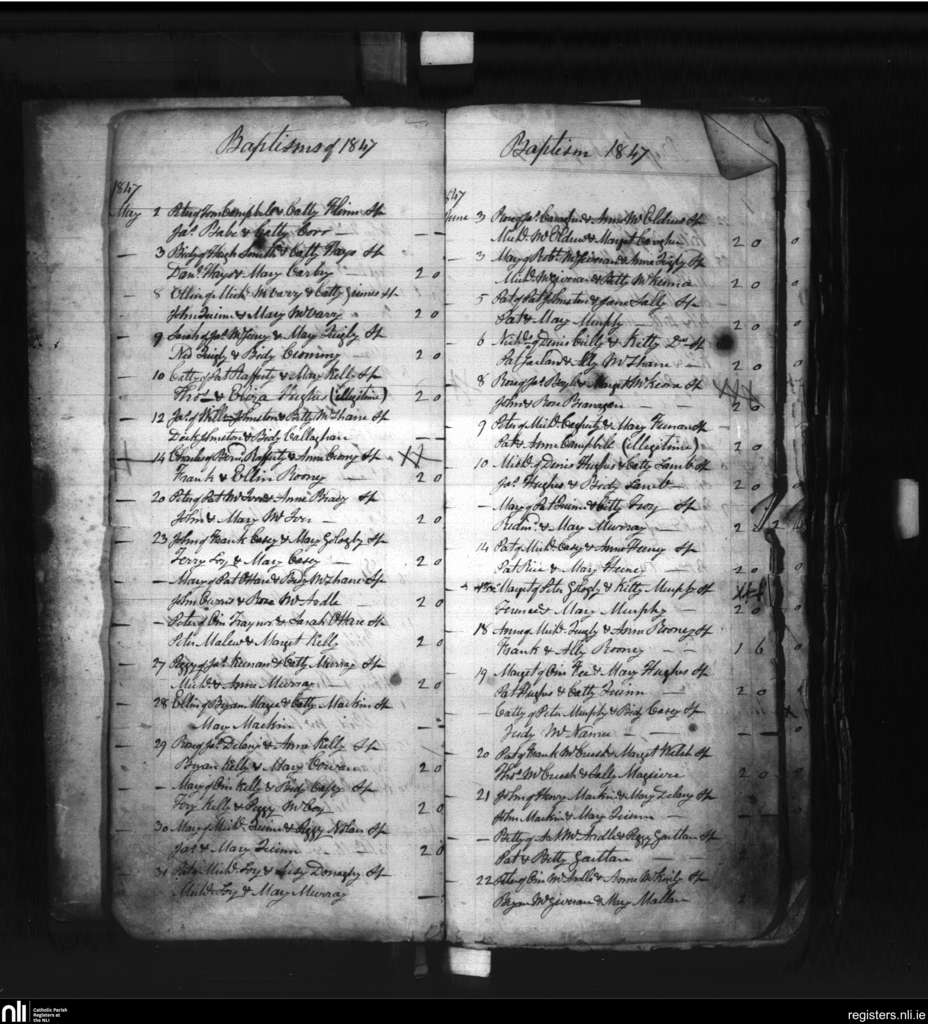 Baptisms of 1847
1847
May 2 Peter of Tom Campbell & Catty Flinn Sp
Jas. Babe & Catty Corr
3 Bridy of Hugh Smith & Catty Hays Sp
Danl. Hays & Mary Carby 2 0
8 Ellin of Mick McCarry & Catty Grimes Sp
John Quinn & Mary McCarry 2 0
9 Sarah of Jas. & Mary Quigly Sp
Ned Quigly & Bridy 2 0
10 Catty of Pat Rafferty & Mary Kelly Sp
Thos. & Eliza Hughes (illegitime) 2 0
12 Jas. of Willm Johnston & Patty McShane Sp
Johnston & Bridy Callaghan
14 Charles of Rafferty & Anne Sp
Frank & Ellin Rooney 2 0
20 Peter of Pat McIver & Anne Brady Sp
John & Mary McIver 2 0
23 John of Frank Casey & Mary Sp
Terry Foy & Mary Casey 2 0
Mary of Pat OHare & Bridy McShane Sp
John & Rose McArdle 2 0
Peter of Traynor & Sarah OHare Sp
Peter Malew & Marget Kelly 2 0
27 Peggy of Jas. Keenan & Catty Murray Sp
Mick & Anne Murray 2 0
28 Ellin of Bryan Magee & Catty Mackin Sp
Mary Mackin
29 Rose of Jas. Delany & Anne Kelly Sp
Bryan Kelly & Mary Cowan 2 0
Mary of Kelly & Bridy Casey Sp
Kelly & Peggy McCoy 2 0
30 Mary of Mick Quinn & Peggy Nolan Sp
Jas. & Mary Quinn 2 0
31 Peter Mick Foy & Donaghy Sp
Mick Foy & Mary Murray
Baptism 1847
1847
June 3 Rose of Jas. & Anne Sp
Mick & Marget 2 0 0
3 Mary of Robt. McGivern & Anne Quigly Sp
Mick McGivern & Patty McKenna 2 0 0
5 Pat of Pat Johnston & Jane Lally Sp
Pat & Mary Murphy 2 0 0
6 of Denis Cully & Kitty Do. Sp
Pat Garland & Ally McShane 2 0 0
8 Rose of Jas. Boyle & Marget McKeown Sp
John & Rose Branagan 2 0
9 Peter of Mick & Mary Sp
Pat & Anne Campbell (illegitime) 2 0 0
10 Mick of Denis Hughes & Catty Lamb Sp
Jas. Hughes & Bridy Lamb 2 0 0
Mary of Pat Quinn & Catty Sp
& Mary Murray
14 Pat of Mick Casey & Anne Heeney Sp
Pat Rice & Mary Heeney 2 0 0
Marget of Peter & Kitty Murphy Sp
& Mary Murphy 2 0 0
18 Anne of Mick Quigly & Anne Rooney Sp
Frank & Ally Rooney 1 6 0
19 Marget of Fee & Mary Hughes Sp
Pat Hughes & Catty Quinn 2 0
Catty of Peter Murphy & Bridy Casey Sp
Judy McNamee
20 Pat of Frank McCreesh & Marget Welsh Sp
Thos. McCreesh & Sally Maguire 2 0 0
21 John of Henry Mackin & Mary Delany Sp
John Mackin & Mary Quinn
Betty of McArdle & Peggy Gartlan Sp
Pat & Betty Gartlan
22 of McArdle & Anne Sp
Bryan McGivern & Mary Mallon 2
nli
Catholic Parish
Registers at
the NLI
registers.nli.ie